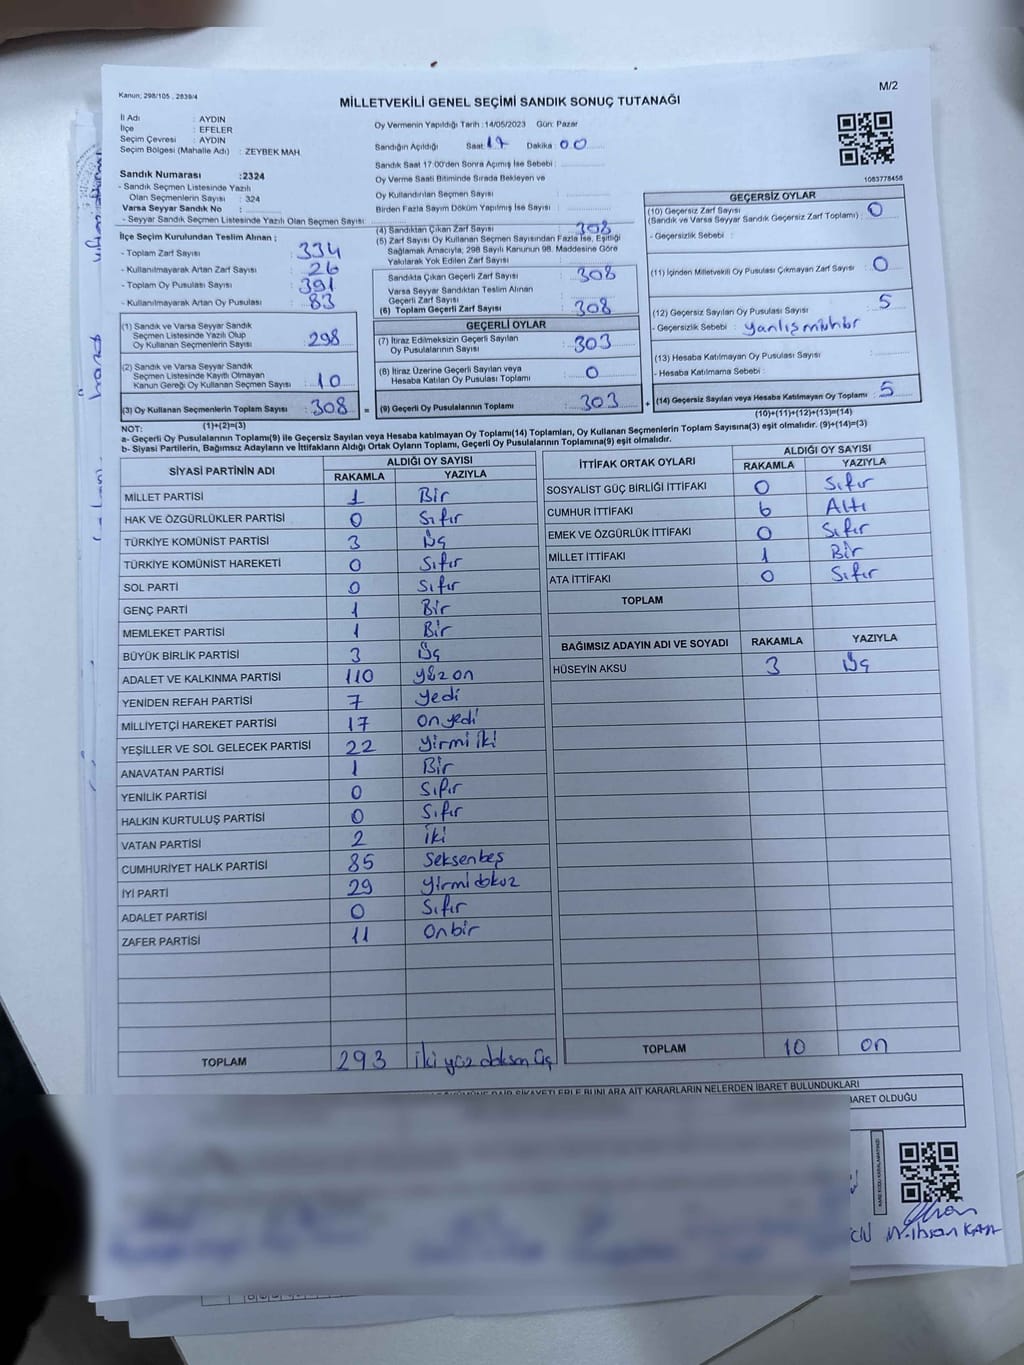 Kanun; 298/105 , 2839/4
M/2
MİLLETVEKİLİ GENEL SEÇİMİ SANDIK SONUÇ TUTANAĞI
İl Adı : AYDIN
İlçe : EFELER
Seçim Çevresi : AYDIN
Seçim Bölgesi (Mahalle Adı) : ZEYBEK MAH.
Sandık Numarası :2324
- Sandık Seçmen Listesinde Yazılı
Olan Seçmenlerin Sayısı : 324
Varsa Seyyar Sandık No :
- Seyyar Sandık Seçmen Listesinde Yazılı Olan Seçmen Sayısı:
Oy Vermenin Yapıldığı Tarih :14/05/2023 Gün: Pazar
Sandığın Açıldığı Saat: 17 Dakika : 00
Sandık Saat 17.00'den Sonra Açımış İse Sebebi :
Oy Verme Saati Bitiminde Sırada Bekleyen ve
Oy Kullandırılan Seçmen Sayısı :
Birden Fazla Sayım Döküm Yapılmış İse Sayısı :
1083778456
İlçe Seçim Kurulundan Teslim Alınan ;
- Toplam Zarf Sayısı : 334
- Kullanılmayarak Artan Zarf Sayısı : 26
- Toplam Oy Pusulası Sayısı : 391
- Kullanılmayarak Artan Oy Pusulası : 83
(1) Sandık ve Varsa Seyyar Sandık
Seçmen Listesinde Yazılı Olup
Oy Kullanan Seçmenlerin Sayısı : 298
(2) Sandık ve Varsa Seyyar Sandık
Seçmen Listesinde Kayıtlı Olmayan
Kanun Gereği Oy Kullanan Seçmen Sayısı : 10
(3) Oy Kullanan Seçmenlerin Toplam Sayısı : 308 =
(1)+(2)=(3)
(4) Sandıktan Çıkan Zarf Sayısı : 308
(5) Zarf Sayısı Oy Kullanan Seçmen Sayısından Fazla İse, Eşitliği
Sağlamak Amacıyla, 298 Sayılı Kanunun 98. Maddesine Göre
Yakılarak Yok Edilen Zarf Sayısı :
Sandıkta Çıkan Geçerli Zarf Sayısı : 308
Varsa Seyyar Sandıktan Teslim Alınan
Geçerli Zarf Sayısı :
(6) Toplam Geçerli Zarf Sayısı : 308
GEÇERLİ OYLAR
(7) İtiraz Edilmeksizin Geçerli Sayılan
Oy Pusulalarının Sayısı : 303
(8) İtiraz Üzerine Geçerli Sayılan veya
Hesaba Katılan Oy Pusulası Toplamı : 0
(9) Geçerli Oy Pusulalarının Toplamı : 303 +
GEÇERSİZ OYLAR
(10) Geçersiz Zarf Sayısı
(Sandık ve Varsa Seyyar Sandık Geçersiz Zarf Toplamı) : 0
- Geçersizlik Sebebi :
(11) İçinden Milletvekili Oy Pusulası Çıkmayan Zarf Sayısı : 0
(12) Geçersiz Sayılan Oy Pusulası Sayısı : 5
- Geçersizlik Sebebi : yanlış mühür
(13) Hesaba Katılmayan Oy Pusulası Sayısı :
- Hesaba Katılmama Sebebi :
(14) Geçersiz Sayılan veya Hesaba Katılmayan Oy Toplamı : 5
(10)+(11)+(12)+(13)=(14)
NOT:
a- Geçerli Oy Pusulalarının Toplamı(9) ile Geçersiz Sayılan veya Hesaba katılmayan Oy Toplamı(14) Toplamları, Oy Kullanan Seçmenlerin Toplam Sayısına(3) eşit olmalıdır. (9)+(14)=(3)
b- Siyasi Partilerin, Bağımsız Adayların ve İttifakların Aldığı Ortak Oyların Toplamı, Geçerli Oy Pusulalarının Toplamına(9) eşit olmalıdır.
SİYASİ PARTİNİN ADI ALDIĞI OY SAYISI
RAKAMLA YAZIYLA
MİLLET PARTİSİ 1 Bir
HAK VE ÖZGÜRLÜKLER PARTİSİ 0 Sıfır
TÜRKİYE KOMÜNİST PARTİSİ 3 Üç
TÜRKİYE KOMÜNİST HAREKETİ 0 Sıfır
SOL PARTİ 0 Sıfır
GENÇ PARTİ 1 Bir
MEMLEKET PARTİSİ 1 Bir
BÜYÜK BİRLİK PARTİSİ 3 Üç
ADALET VE KALKINMA PARTİSİ 110 yüz on
YENİDEN REFAH PARTİSİ 7 yedi
MİLLİYETÇİ HAREKET PARTİSİ 17 on yedi
YEŞİLLER VE SOL GELECEK PARTİSİ 22 yirmi iki
ANAVATAN PARTİSİ 1 Bir
YENİLİK PARTİSİ 0 Sıfır
HALKIN KURTULUŞ PARTİSİ 0 Sıfır
VATAN PARTİSİ 2 iki
CUMHURİYET HALK PARTİSİ 85 Seksen beş
İYİ PARTİ 29 yirmi dokuz
ADALET PARTİSİ 0 Sıfır
ZAFER PARTİSİ 11 Onbir
TOPLAM 293 iki yüz doksan üç
İTTİFAK ORTAK OYLARI ALDIĞI OY SAYISI
RAKAMLA YAZIYLA
SOSYALİST GÜÇ BİRLİĞİ İTTİFAKI 0 Sıfır
CUMHUR İTTİFAKI 6 Altı
EMEK VE ÖZGÜRLÜK İTTİFAKI 0 Sıfır
MİLLET İTTİFAKI 1 Bir
ATA İTTİFAKI 0 Sıfır
TOPLAM
BAĞIMSIZ ADAYIN ADI VE SOYADI RAKAMLA YAZIYLA
HÜSEYİN AKSU 3 Üç
TOPLAM 10 on
ŞİKAYETLERLE BUNLARA AİT KARARLARIN NELERDEN İBARET BULUNDUKLARI
İBARET OLDUĞU